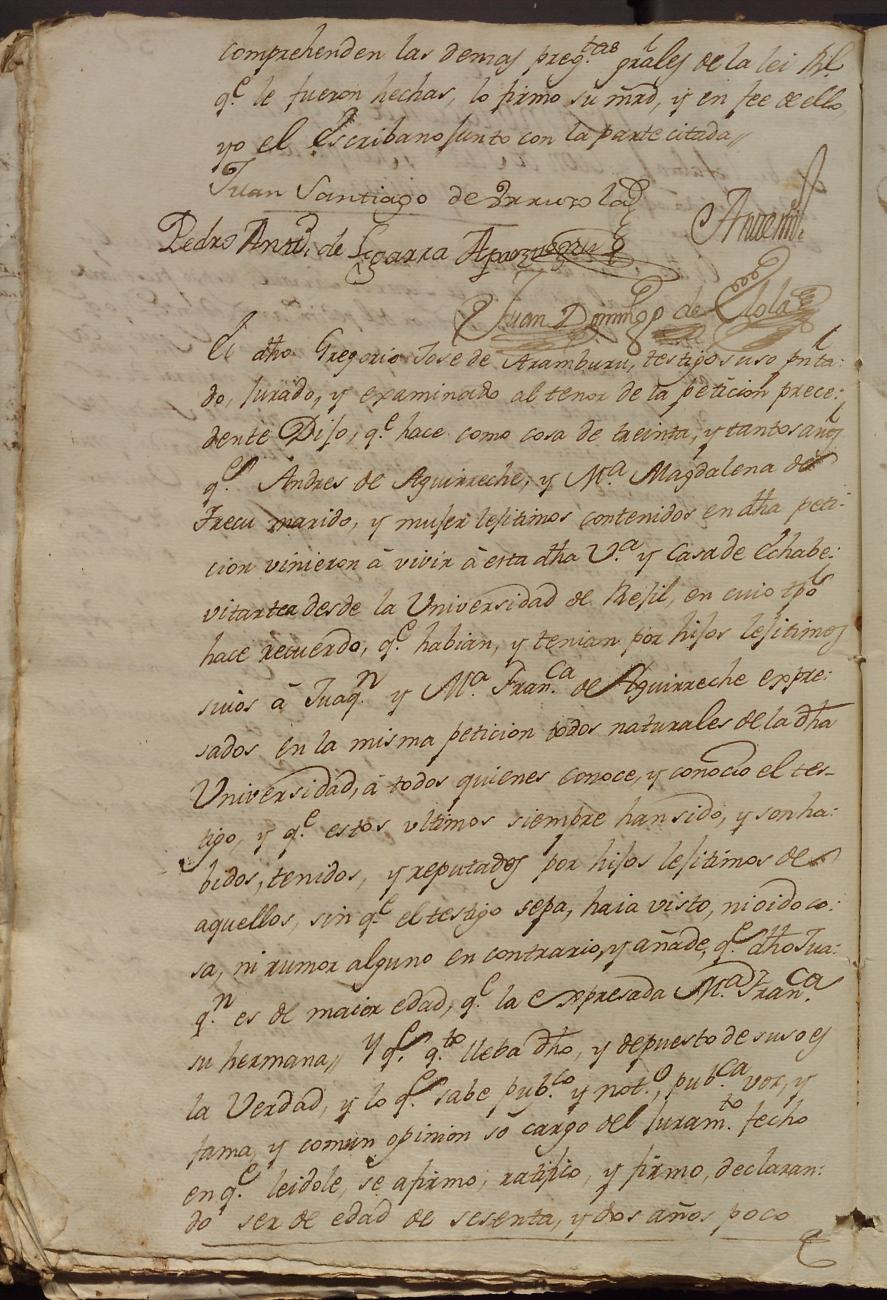 comprehenden las demas preg.tas grales de la lei Rl
q.e le fueron hechas, lo firmo su mrd, y en fee de ello,
yo el Escribano Junto con la parte citada,,
Juan Santiago de
Pedro Ant.o de Antemi
Juan Domingo de Olola
El dho Gregorio Jose de Aramburu, testigo suso pnta:
do, Jurado, y examinado al tenor de la peticion prece:
dente Dijo, q.e hace como cosa de treinta, y tantos años
q.e Andres de Aguirreche, y M.a Magdalena de
Frecu marido, y mujer lejitimos contenidos en dha peti:
cion vinieron â vivir â esta dha V.a y Casa de Echabe:
vitartea desde la Universidad de Rejil, en cuio tpo
hace recuerdo, q.e habian, y tenian por hijos lejitimos
suios â Juaq.n y M.a Fran.ca de Aguirreche expre:
sados en la misma peticion todos naturales de la dha
Universidad, â todos quienes conoce, y conocio el tes-
tigo, y q.e estos ultimos siempre han sido, y son ha:
bidos, tenidos, y reputados por hijos lejitimos de
aquellos, sin q.e el testigo sepa, haia visto, ni oido co:
sa, ni rumor alguno en contrario, y añade, q.e dho Jua:
q.n es de maior edad, q.e la expresada M.a Fran.ca
su hermana,, Y q.e q.to lleba dho, y depuesto de suso es
la Verdad, y lo q.e sabe pub.co y not.o, pub.ca voz, y
fama, y comun opinion so cargo del Juram.to fecho
en q.e leidole, se afirmo, ratifico, y firmo, declaran:
do ser de edad de sesenta, y dos años poco